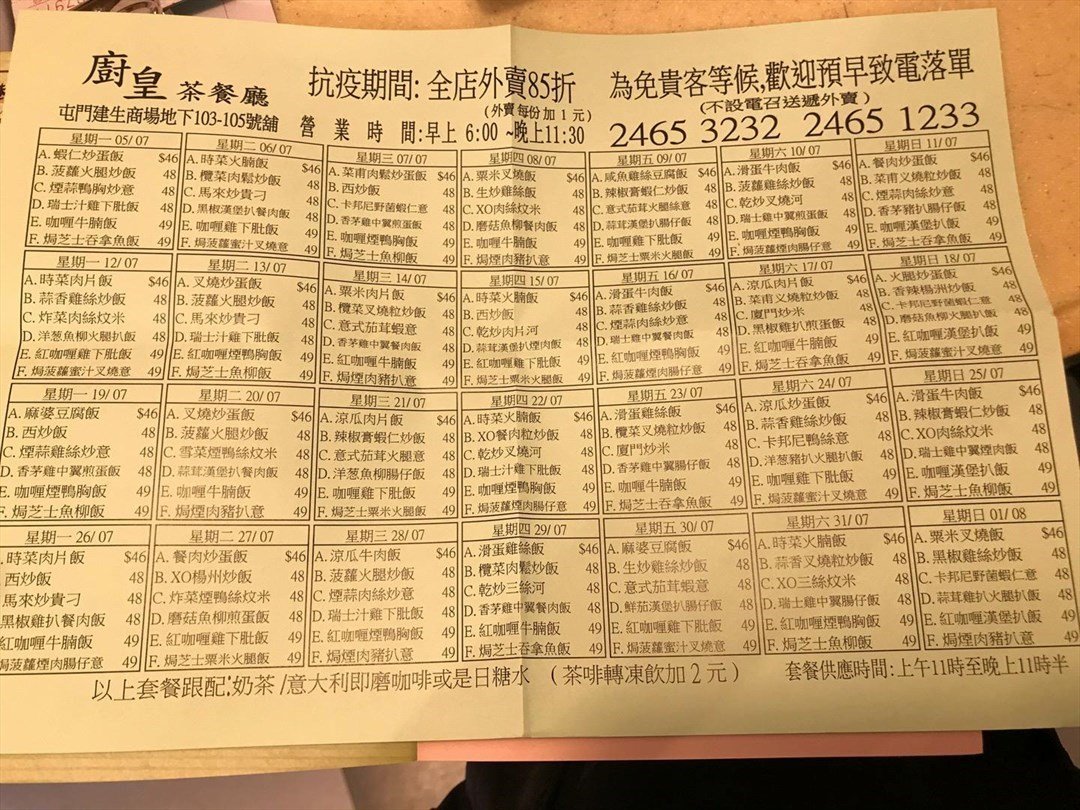 廚皇 茶餐廳
屯門建生商場地下103-105號舖
抗疫期間: 全店外賣85折
(外賣每份加1元)
營業時間:早上 6:00 ~晚上11:30
為免貴客等候,歡迎預早致電落單
(不設電召送遞外賣)
2465 3232 2465 1233
星期一 05/07
A. 蝦仁炒蛋飯 $46
B. 菠蘿火腿炒飯 48
C. 煙蒜鴨胸炒意 48
D. 瑞士汁雞下肶飯 48
E. 咖喱牛腩飯 49
F. 焗芝士吞拿魚飯 49
星期二 06/07
A. 時菜火腩飯 $46
B. 欖菜肉鬆炒飯 48
C. 馬來炒貴刁 48
D. 黑椒漢堡扒餐肉飯 48
E. 咖喱雞下肶飯 49
F. 焗菠蘿蜜汁叉燒意 49
星期三 07/07
A. 菜甫肉鬆炒蛋飯 $46
B. 西炒飯 48
C. 卡邦尼野菌蝦仁意 48
D. 香茅雞中翼煎蛋飯 48
E. 咖喱煙鴨胸飯 49
F. 焗芝士魚柳飯 49
星期四 08/07
A. 粟米叉燒飯 $46
B. 生炒雞絲飯 48
C. XO肉絲炆米 48
D. 磨菇魚柳餐肉飯 48
E. 咖喱牛腩飯 49
F. 焗煙肉豬扒意 49
星期五 09/07
A. 咸魚雞絲豆腐飯 $46
B. 辣椒膏蝦仁炒飯 48
C. 意式茄茸火腿絲意 48
D. 蒜茸雞扒腸仔飯 48
E. 咖喱雞下肶飯 49
F. 焗芝士粟米火腿飯 49
星期六 10/07
A. 滑蛋牛肉飯 $46
B. 菠蘿雞絲炒飯 48
C. 乾炒叉燒河 48
D. 瑞士雞中翼煎蛋飯 48
E. 咖喱煙鴨胸飯 49
F. 焗菠蘿煙肉腸仔意 49
星期日 11/07
A. 餐肉炒蛋飯 $46
B. 菜甫义燒粒炒飯 48
C. 煙蒜肉絲炒意 48
D. 香茅豬扒腸仔飯 48
E. 咖喱漢堡扒飯 49
F. 焗芝士吞拿魚飯 49
星期一 12/07
A. 時菜肉片飯 $46
B. 蒜香雞絲炒飯 48
C. 炸菜肉絲炆米 48
D. 洋葱魚柳火腿扒飯 48
E. 紅咖喱雞下肶飯 49
F. 焗菠蘿蜜汁叉燒意 49
星期二 13/07
A. 叉燒炒蛋飯 $46
B. 菠蘿火腿炒飯 48
C. 馬來炒貴刁 48
D. 瑞士汁雞下肶飯 48
E. 紅咖喱煙鴨胸飯 49
F. 焗芝士魚柳飯 49
星期三 14/07
A. 粟米肉片飯 $46
B. 欖菜叉燒粒炒飯 48
C. 意式茄茸蝦意 48
D. 香茅雞中翼餐肉飯 48
E. 紅咖喱牛腩飯 49
F. 焗煙肉豬扒意 49
星期四 15/07
A. 時菜火腩飯 $46
B. 西炒飯 48
C. 乾炒肉片河 48
D. 蒜茸漢堡扒煙肉飯 48
E. 紅咖喱雞下肶飯 49
F. 焗芝士粟米火腿飯 49
星期五 16/07
A. 滑蛋牛肉飯 $46
B. 蒜香雞絲炒飯 48
C. 煙蒜肉絲炒意 48
D. 瑞士雞中翼餐肉飯 48
E. 紅咖喱煙鴨胸飯 49
F. 焗菠蘿煙肉腸仔意 49
星期六 17/07
A. 涼瓜肉片飯 $46
B. 菜甫义燒粒炒飯 48
C. 廈門炒米 48
D. 黑椒雞扒煎蛋飯 48
E. 紅咖喱牛腩飯 49
F. 焗芝士吞拿魚飯 49
星期日 18/07
A. 火腿炒蛋飯 $46
B. 香辣楊洲炒飯 48
C. 卡邦尼野菌蝦仁意 48
D. 磨菇魚柳火腿扒飯 48
E. 紅咖喱漢堡扒飯 49
F. 焗菠蘿蜜汁叉燒意 49
星期一 19/07
A. 麻婆豆腐飯 $46
B. 西炒飯 48
C. 煙蒜雞絲炒意 48
D. 香茅雞中翼煎蛋飯 48
E. 咖喱煙鴨胸飯 49
F. 焗芝士魚柳飯 49
星期二 20/07
A. 叉燒炒蛋飯 $46
B. 菠蘿火腿炒飯 48
C. 雪菜煙鴨絲炆米 48
D. 蒜茸漢堡扒餐肉飯 48
E. 咖喱牛腩飯 49
F. 焗煙肉豬扒意 49
星期三 21/07
A. 涼瓜肉片飯 $46
B. 辣椒膏蝦仁炒飯 48
C. 意式茄茸火腿意 48
D. 洋葱魚柳腸仔飯 48
E. 咖喱雞下肶飯 49
F. 焗芝士粟米火腿飯 49
星期四 22/07
A. 時菜火腩飯 $46
B. XO餐肉粒炒飯 48
C. 乾炒叉燒河 48
D. 瑞士汁雞下肶飯 48
E. 咖喱煙鴨胸飯 49
F. 焗菠蘿煙肉腸仔意 49
星期五 23/07
A. 滑蛋雞絲飯 $46
B. 欖菜叉燒粒炒飯 48
C. 廈門炒米 48
D. 香茅雞中翼腸仔飯 48
E. 咖喱牛腩飯 49
F. 焗芝士吞拿魚飯 49
星期六 24/07
A. 涼瓜炒蛋飯 $46
B. 蒜香雞絲炒飯 48
C. 卡邦尼鴨絲意 48
D. 洋葱豬扒火腿扒飯 48
E. 咖喱雞下肶飯 49
F. 焗菠蘿蜜汁叉燒意 49
星期日 25/07
A. 滑蛋牛肉飯 $46
B. 辣椒膏蝦仁炒飯 48
C. XO肉絲炆米 48
D. 瑞士雞中翼煙肉飯 48
E. 咖喱漢堡扒飯 49
F. 焗芝士魚柳飯 49
星期一 26/07
. 時菜肉片飯 $46
. 西炒飯 48
馬來炒貴刁 48
黑椒雞扒餐肉飯 48
紅咖喱牛腩飯 49
焗菠蘿煙肉腸仔意 49
星期二 27/07
A. 餐肉炒蛋飯 $46
B. XO楊州炒飯 48
C. 炸菜煙鴨絲炆米 48
D. 磨菇魚柳煎蛋飯 48
E. 紅咖喱雞下肶飯 49
F. 焗芝士粟米火腿飯 49
星期三 28/07
A. 涼瓜牛肉飯 $46
B. 菠蘿火腿炒飯 48
C. 煙蒜肉絲炒意 48
D. 瑞士汁雞下肶飯 48
E. 紅咖喱煙鴨胸飯 49
F. 焗煙肉豬扒意 49
星期四 29/07
A. 滑蛋雞絲飯 $46
B. 欖菜肉鬆炒飯 48
C. 乾炒三絲河 48
D. 香茅雞中翼餐肉飯 48
E. 紅咖喱牛腩飯 49
F. 焗芝士吞拿魚飯 49
星期五 30/07
A. 麻婆豆腐飯 $46
B. 生炒雞絲炒飯 48
C. 意式茄茸蝦意 48
D. 鮮茄漢堡扒腸仔飯 48
E. 紅咖喱雞下肶飯 49
F. 焗菠蘿蜜汁叉燒意 49
星期六 31/07
A. 時菜火腩飯 $46
B. 蒜香叉燒粒炒飯 48
C. XO三絲炆米 48
D. 瑞士雞中翼腸仔飯 48
E. 紅咖喱煙鴨胸飯 49
F. 焗芝士魚柳飯 49
星期日 01/08
A. 粟米叉燒飯 $46
B. 黑椒雞絲炒飯 48
C. 卡邦尼野菌蝦仁意 48
D. 蒜茸雞扒火腿扒飯 48
E. 紅咖喱漢堡扒飯 49
F. 焗煙肉豬扒意 49
以上套餐跟配;奶茶 /意大利即磨咖啡或是日糖水 (茶啡轉凍飲加2元)
套餐供應時間:上午11時至晚上11時半